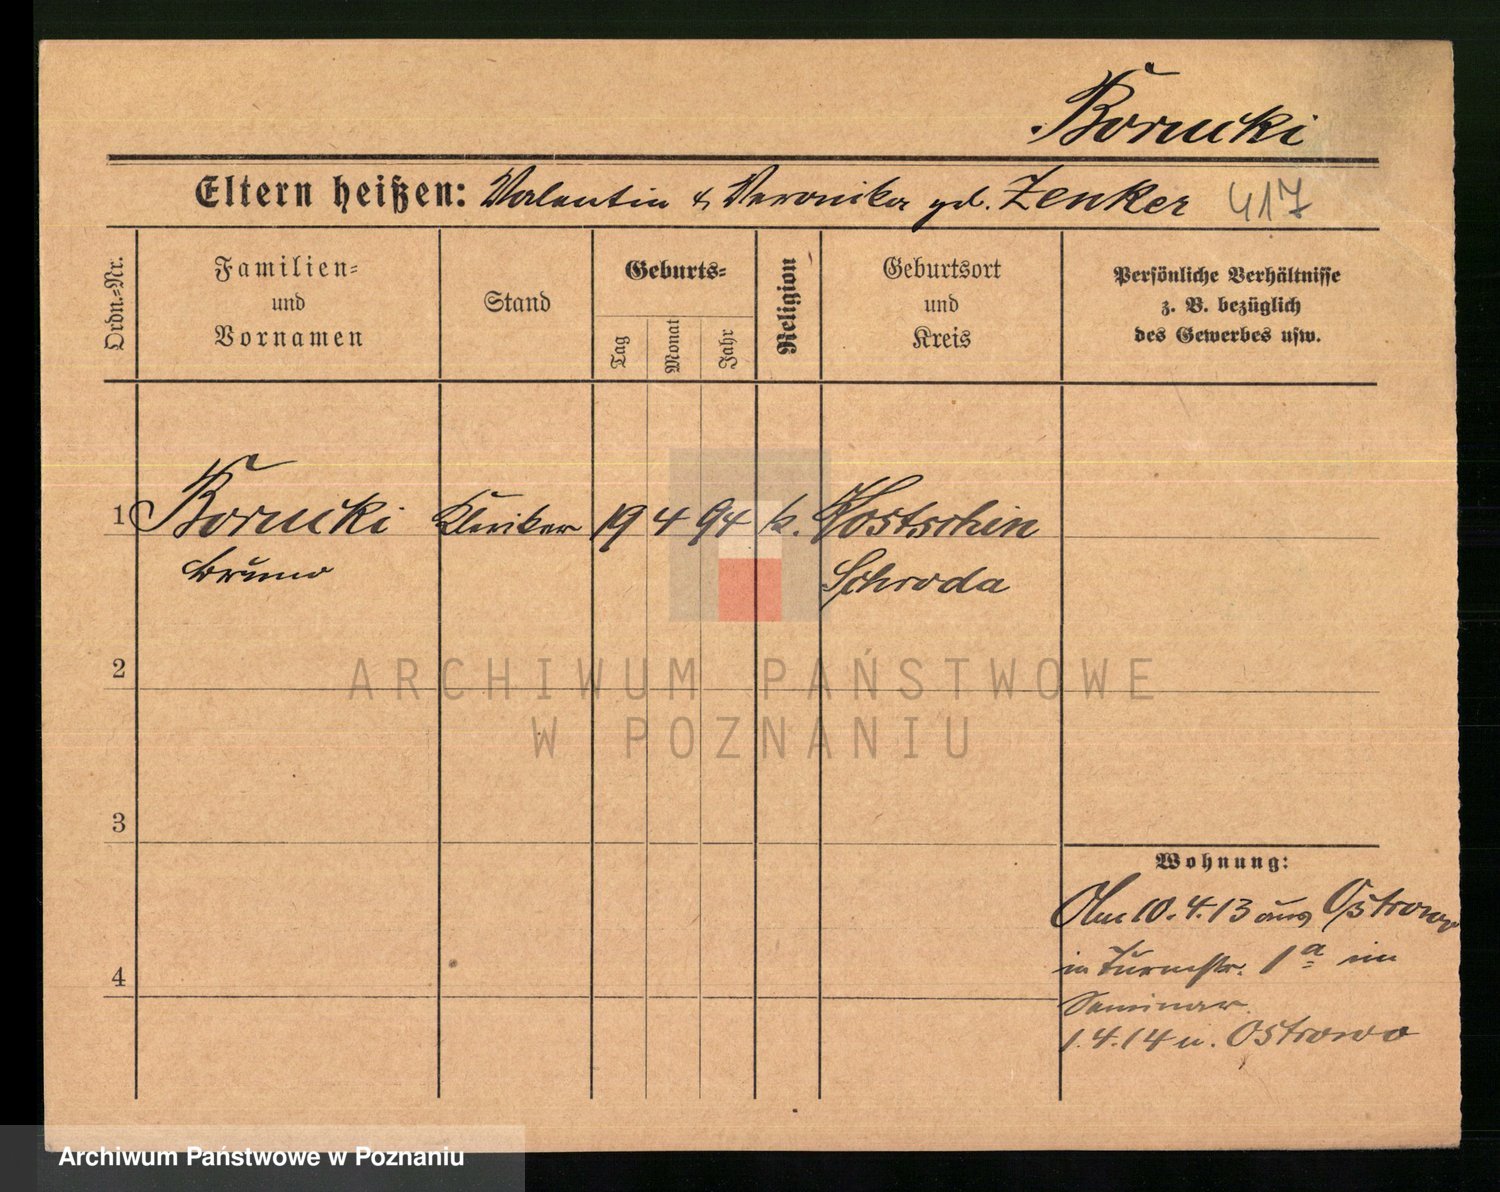 Borucki
Eltern heißen: Valentin & Veronika geb. Zenker 417
Ordn.=Nr.
Familien=
und
Vornamen
Stand
Geburts=
Tag
Monat
Jahr
Religion
Geburtsort
und
Kreis
Persönliche Verhältnisse
z. B. bezüglich
des Gewerbes usw.
1 Borucki Kleriker 19 4 94 k. Kostschin
Bruno Schroda
2
3
4
Wohnung:
10.4.13 aus Ostrowo
in Turmstr. 1a im
Seminar.
1.4.14 n. Ostrowo
ARCHIWUM PAŃSTWOWE
W POZNANIU
Archiwum Państwowe w Poznaniu